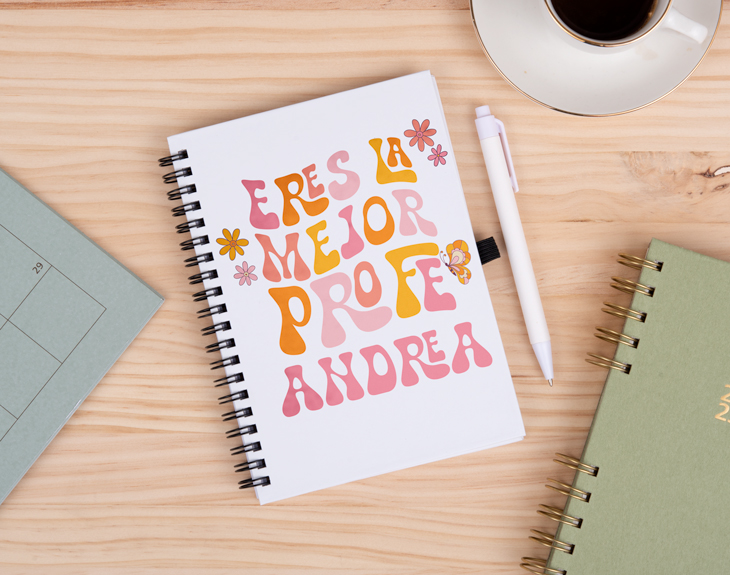 ERES LA
MEJOR
PROFE
ANDREA
29